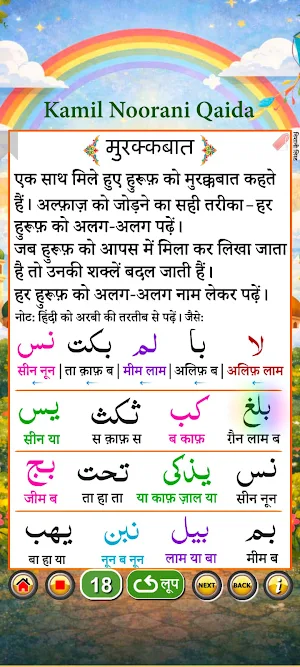 Kamil Noorani Qaida
मुरक्कबात
एक साथ मिले हुए हुरूफ़ को मुरक्कबात कहते
हैं। अल्फ़ाज़ को जोड़ने का सही तरीका – हर
हुरूफ़ को अलग-अलग पढ़ें।
जब हुरूफ़ को आपस में मिला कर लिखा जाता
है तो उनकी शक्लें बदल जाती हैं।
हर हुरूफ़ को अलग-अलग नाम लेकर पढ़ें।
नोट: हिंदी को अरबी की तरतीब से पढ़ें। जैसे:
لا با لم بكت نس
सीन नून | ता क़ाफ़ ब | मीम लाम | अलिफ़ ब | अलिफ़ लाम
بلغ كب ثكث يس
सीन या स क़ाफ़ स ब काफ़ ग़ैन लाम ब
نس يذكى تحت بج
जीम ब ता हा ता या काफ़ ज़ाल या सीन नून
بم بيل نبن يهب
बा हा या नून ब नून लाम या बा मीम ब
18 लूप NEXT BACK i